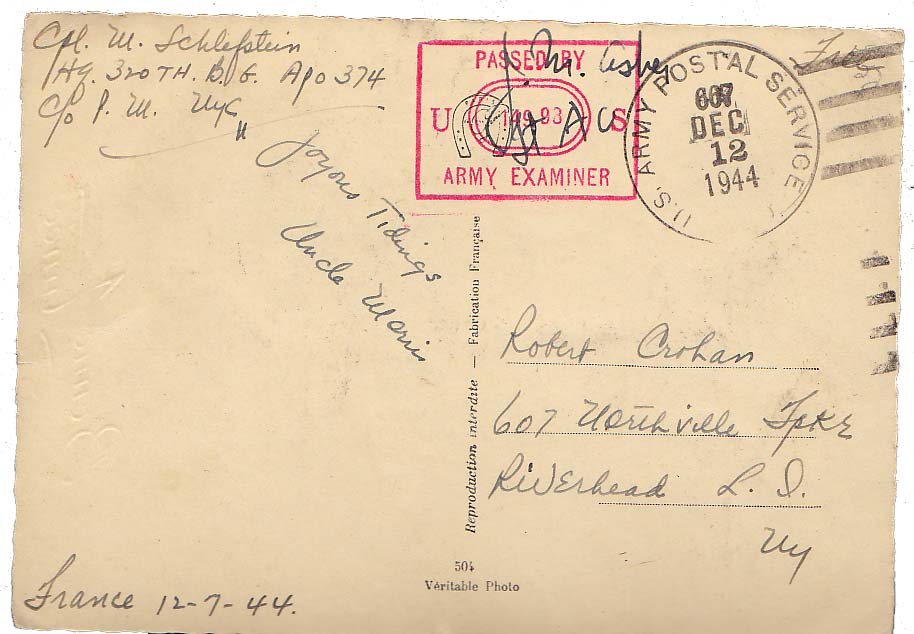 Cpl. M. Schlefstein
Hq. 320TH. B. G. APO 374
C/o P. M. Nyc
Joyous Tidings
Uncle Morris
PASSED BY
U S
ARMY EXAMINER
U.S. ARMY POSTAL SERVICE
607
DEC
12
1944
Free
Reproduction interdite — Fabrication Française
Robert Crohan
607 Northville Tpke
Riverhead L. I.
Ny
504
Véritable Photo
France 12-7-44.